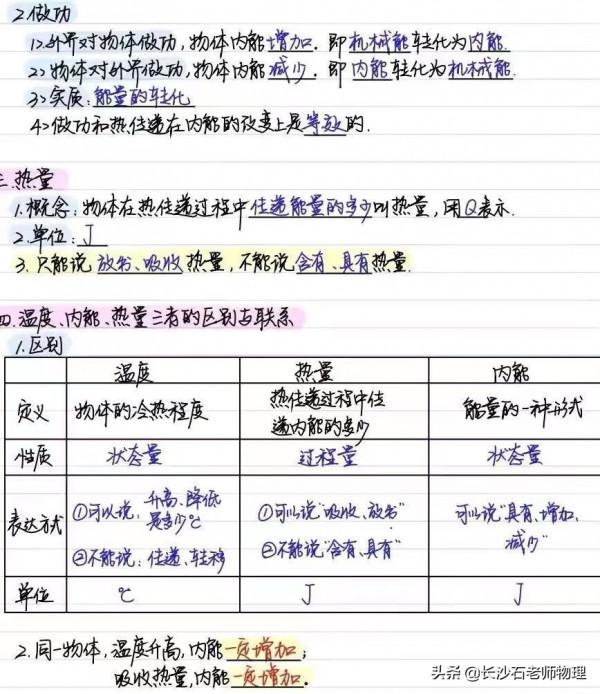 2.做功
1>外界对物体做功,物体内能增加.即机械能转化为内能.
2>物体对外界做功,物体内能减少.即内能转化为机械能.
3>实质:能量的转化
4>做功和热传递在内能的改变上是等效的.
三.热量
1.概念:物体在热传递过程中传递能量的多少叫热量,用Q表示.
2.单位:J
3.只能说放出、吸收热量,不能说含有、具有热量.
四.温度、内能、热量三者的区别与联系
1.区别
温度 热量 内能
定义 物体的冷热程度 热传递过程中传递内能的多少 能量的一种形式
性质 状态量 过程量 状态量
表达方式 ①可以说:升高、降低是多少℃ ②不能说:传递、转移 ①可以说“吸收、放出” ②不能说“含有、具有” 可以说“具有、增加、减少”
单位 ℃ J J
2.同一物体,温度升高,内能一定增加;
吸收热量,内能一定增加.
头条@长沙石老师物理